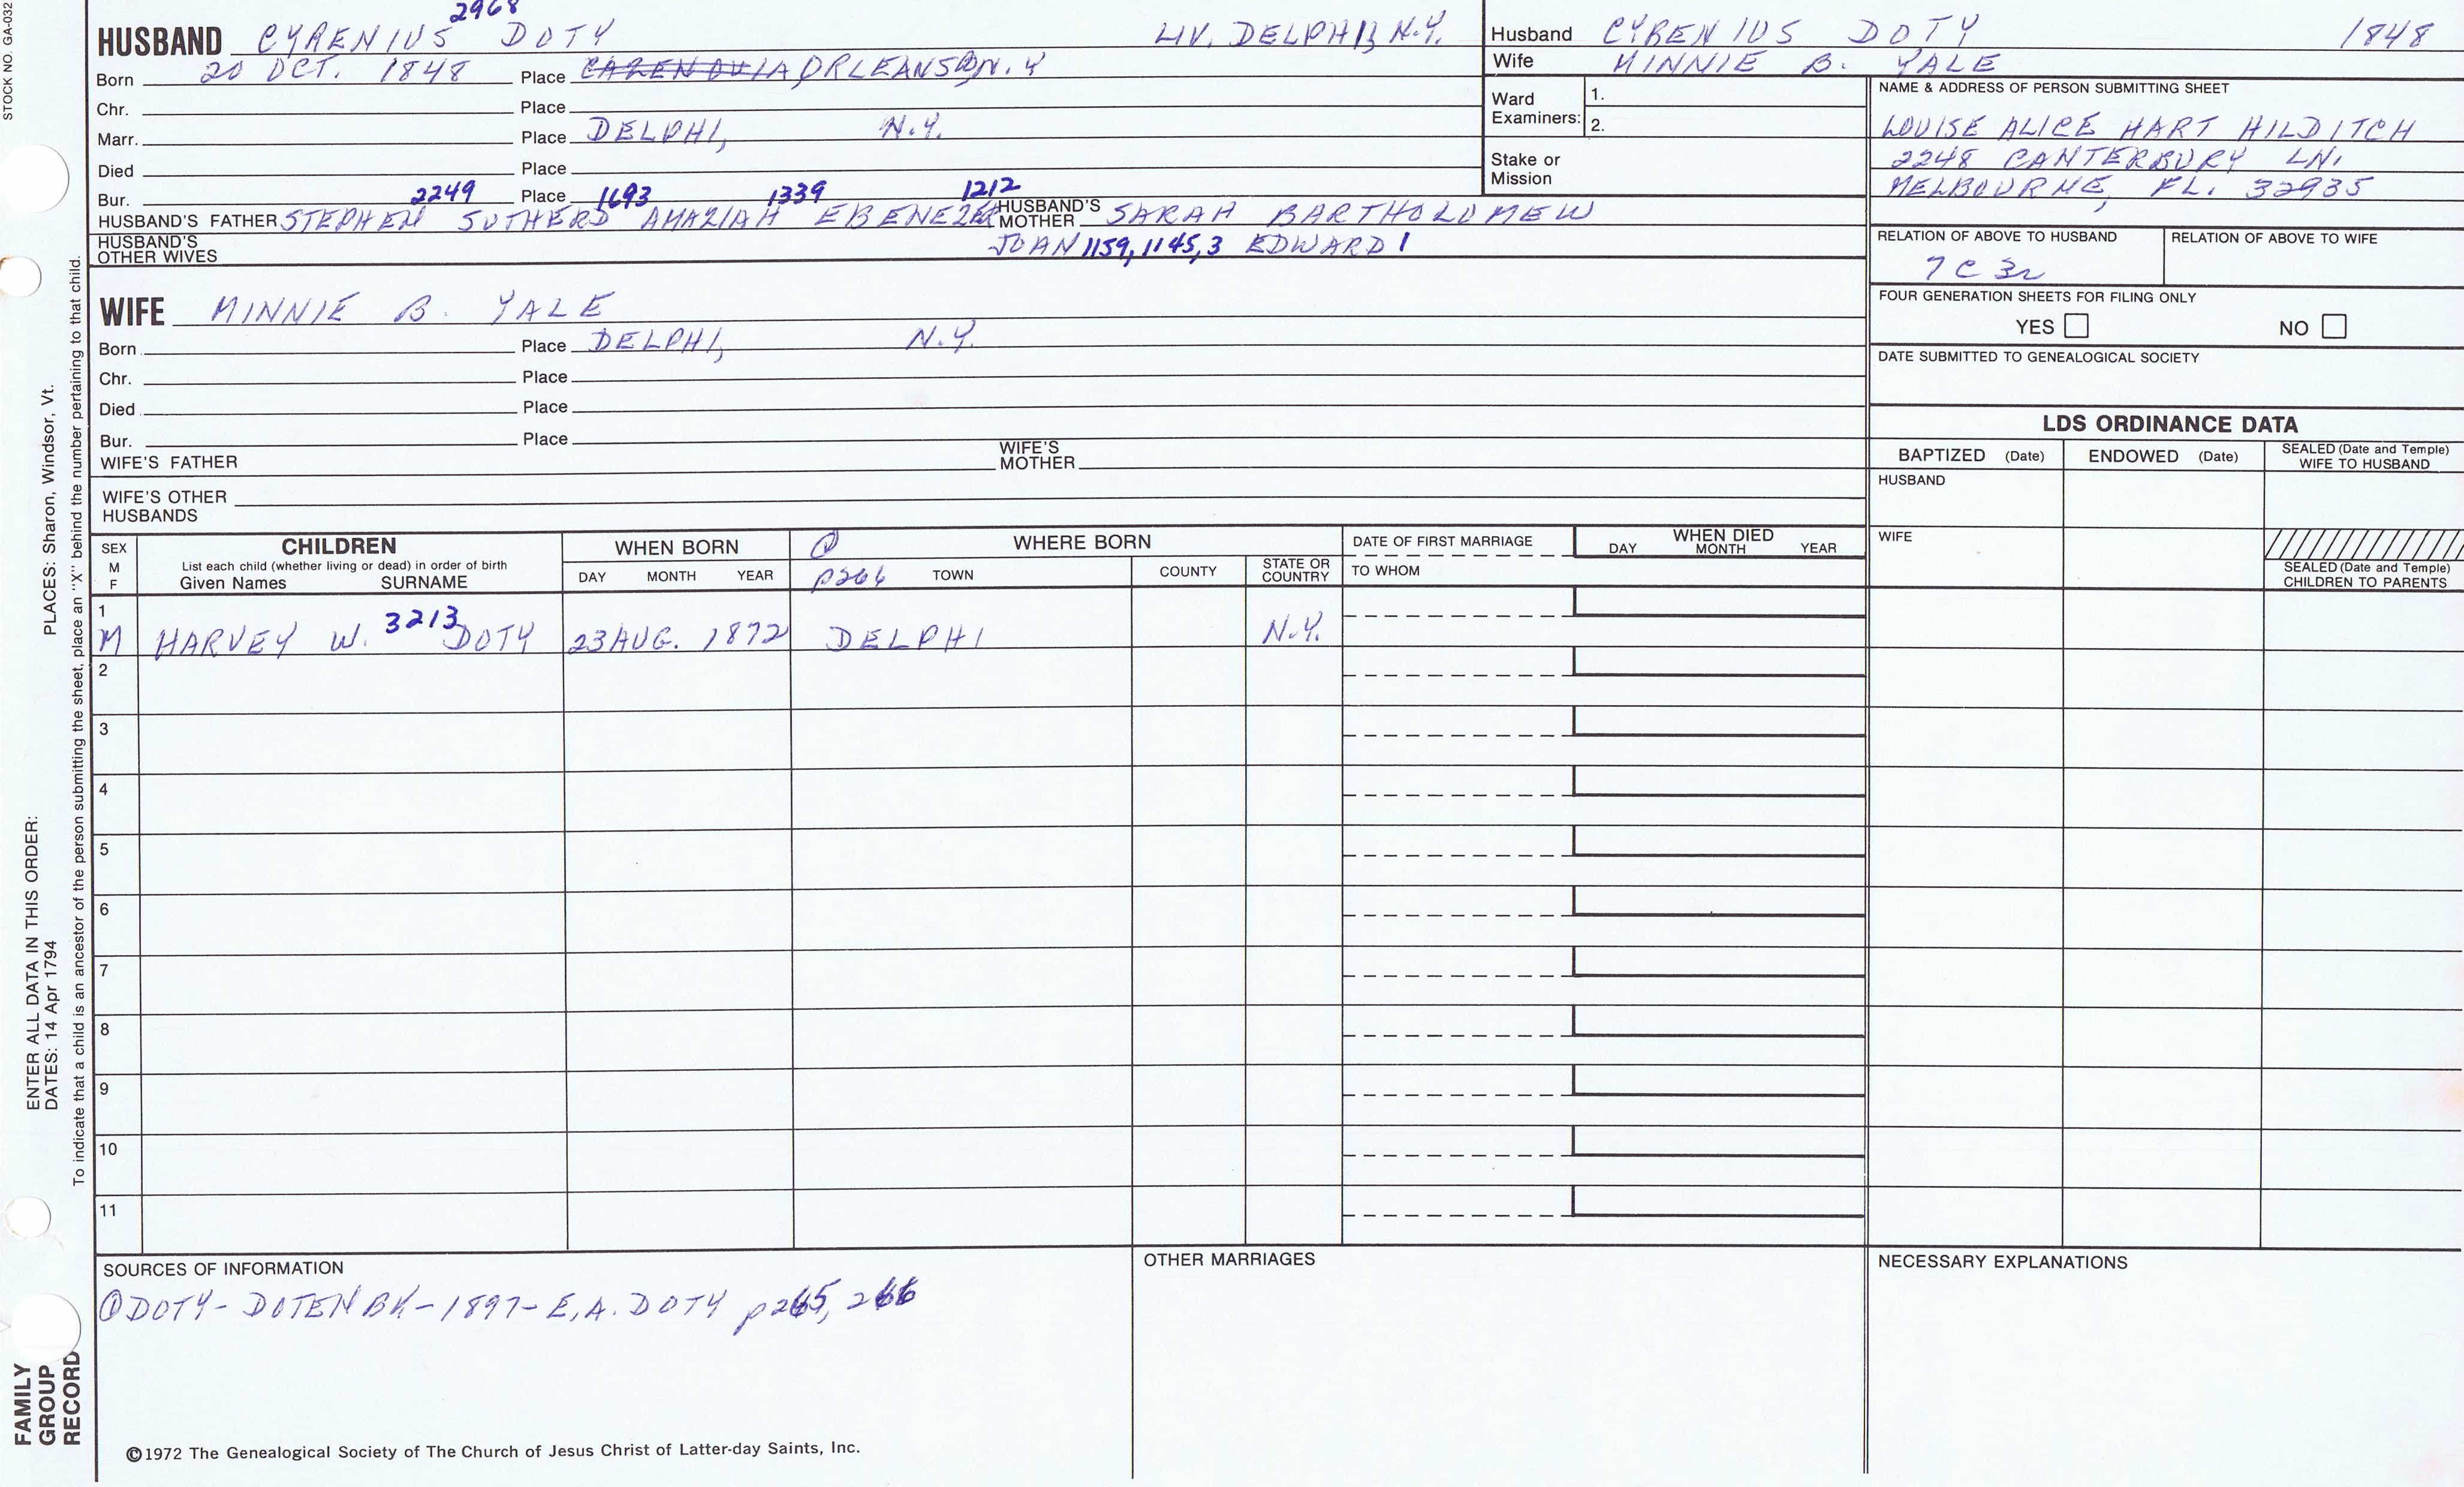 STOCK NO. GA-032
PLACES: Sharon, Windsor, Vt.
ENTER ALL DATA IN THIS ORDER:
DATES: 14 Apr 1794
To indicate that a child is an ancestor of the person submitting the sheet, place an "X" behind the number pertaining to that child.
FAMILY
GROUP
RECORD
2968
HUSBAND CYRENIUS DOTY LIV. DELPHI, N.Y.
Born 20 OCT. 1848 Place ORLEANS N.Y
Chr. Place
Marr. Place DELPHI, N.Y.
Died Place
Bur. 2249 Place 1693 1339 1212
HUSBAND'S FATHER STEPHEN SUTHERD AMAZIAH EBENEZER HUSBAND'S MOTHER SARAH BARTHOLOMEW
HUSBAND'S OTHER WIVES JOHN 1159, 1145, 3 EDWARD 1
WIFE MINNIE B. YALE
Born Place DELPHI, N.Y.
Chr. Place
Died Place
Bur. Place
WIFE'S FATHER WIFE'S MOTHER
WIFE'S OTHER HUSBANDS
Husband CYRENIUS DOTY 1848
Wife MINNIE B. YALE
Ward Examiners: 1.
2.
Stake or Mission
NAME & ADDRESS OF PERSON SUBMITTING SHEET
LOUISE ALICE HART HILDITCH
2248 CANTERBURY LN.
MELBOURNE, FL. 32935
RELATION OF ABOVE TO HUSBAND RELATION OF ABOVE TO WIFE
7C 3r
FOUR GENERATION SHEETS FOR FILING ONLY
YES NO
DATE SUBMITTED TO GENEALOGICAL SOCIETY
LDS ORDINANCE DATA
BAPTIZED (Date) ENDOWED (Date) SEALED (Date and Temple) WIFE TO HUSBAND
HUSBAND
WIFE
SEALED (Date and Temple) CHILDREN TO PARENTS
SEX M F CHILDREN WHEN BORN ① WHERE BORN DATE OF FIRST MARRIAGE WHEN DIED
List each child (whether living or dead) in order of birth
Given Names SURNAME DAY MONTH YEAR p266 TOWN COUNTY STATE OR COUNTRY TO WHOM DAY MONTH YEAR
1
M HARVEY W. 3213 DOTY 23 AUG. 1872 DELPHI N.Y.
2
3
4
5
6
7
8
9
10
11
SOURCES OF INFORMATION OTHER MARRIAGES NECESSARY EXPLANATIONS
① DOTY-DOTEN BK-1897-E.A. DOTY p265, 266
©1972 The Genealogical Society of The Church of Jesus Christ of Latter-day Saints, Inc.